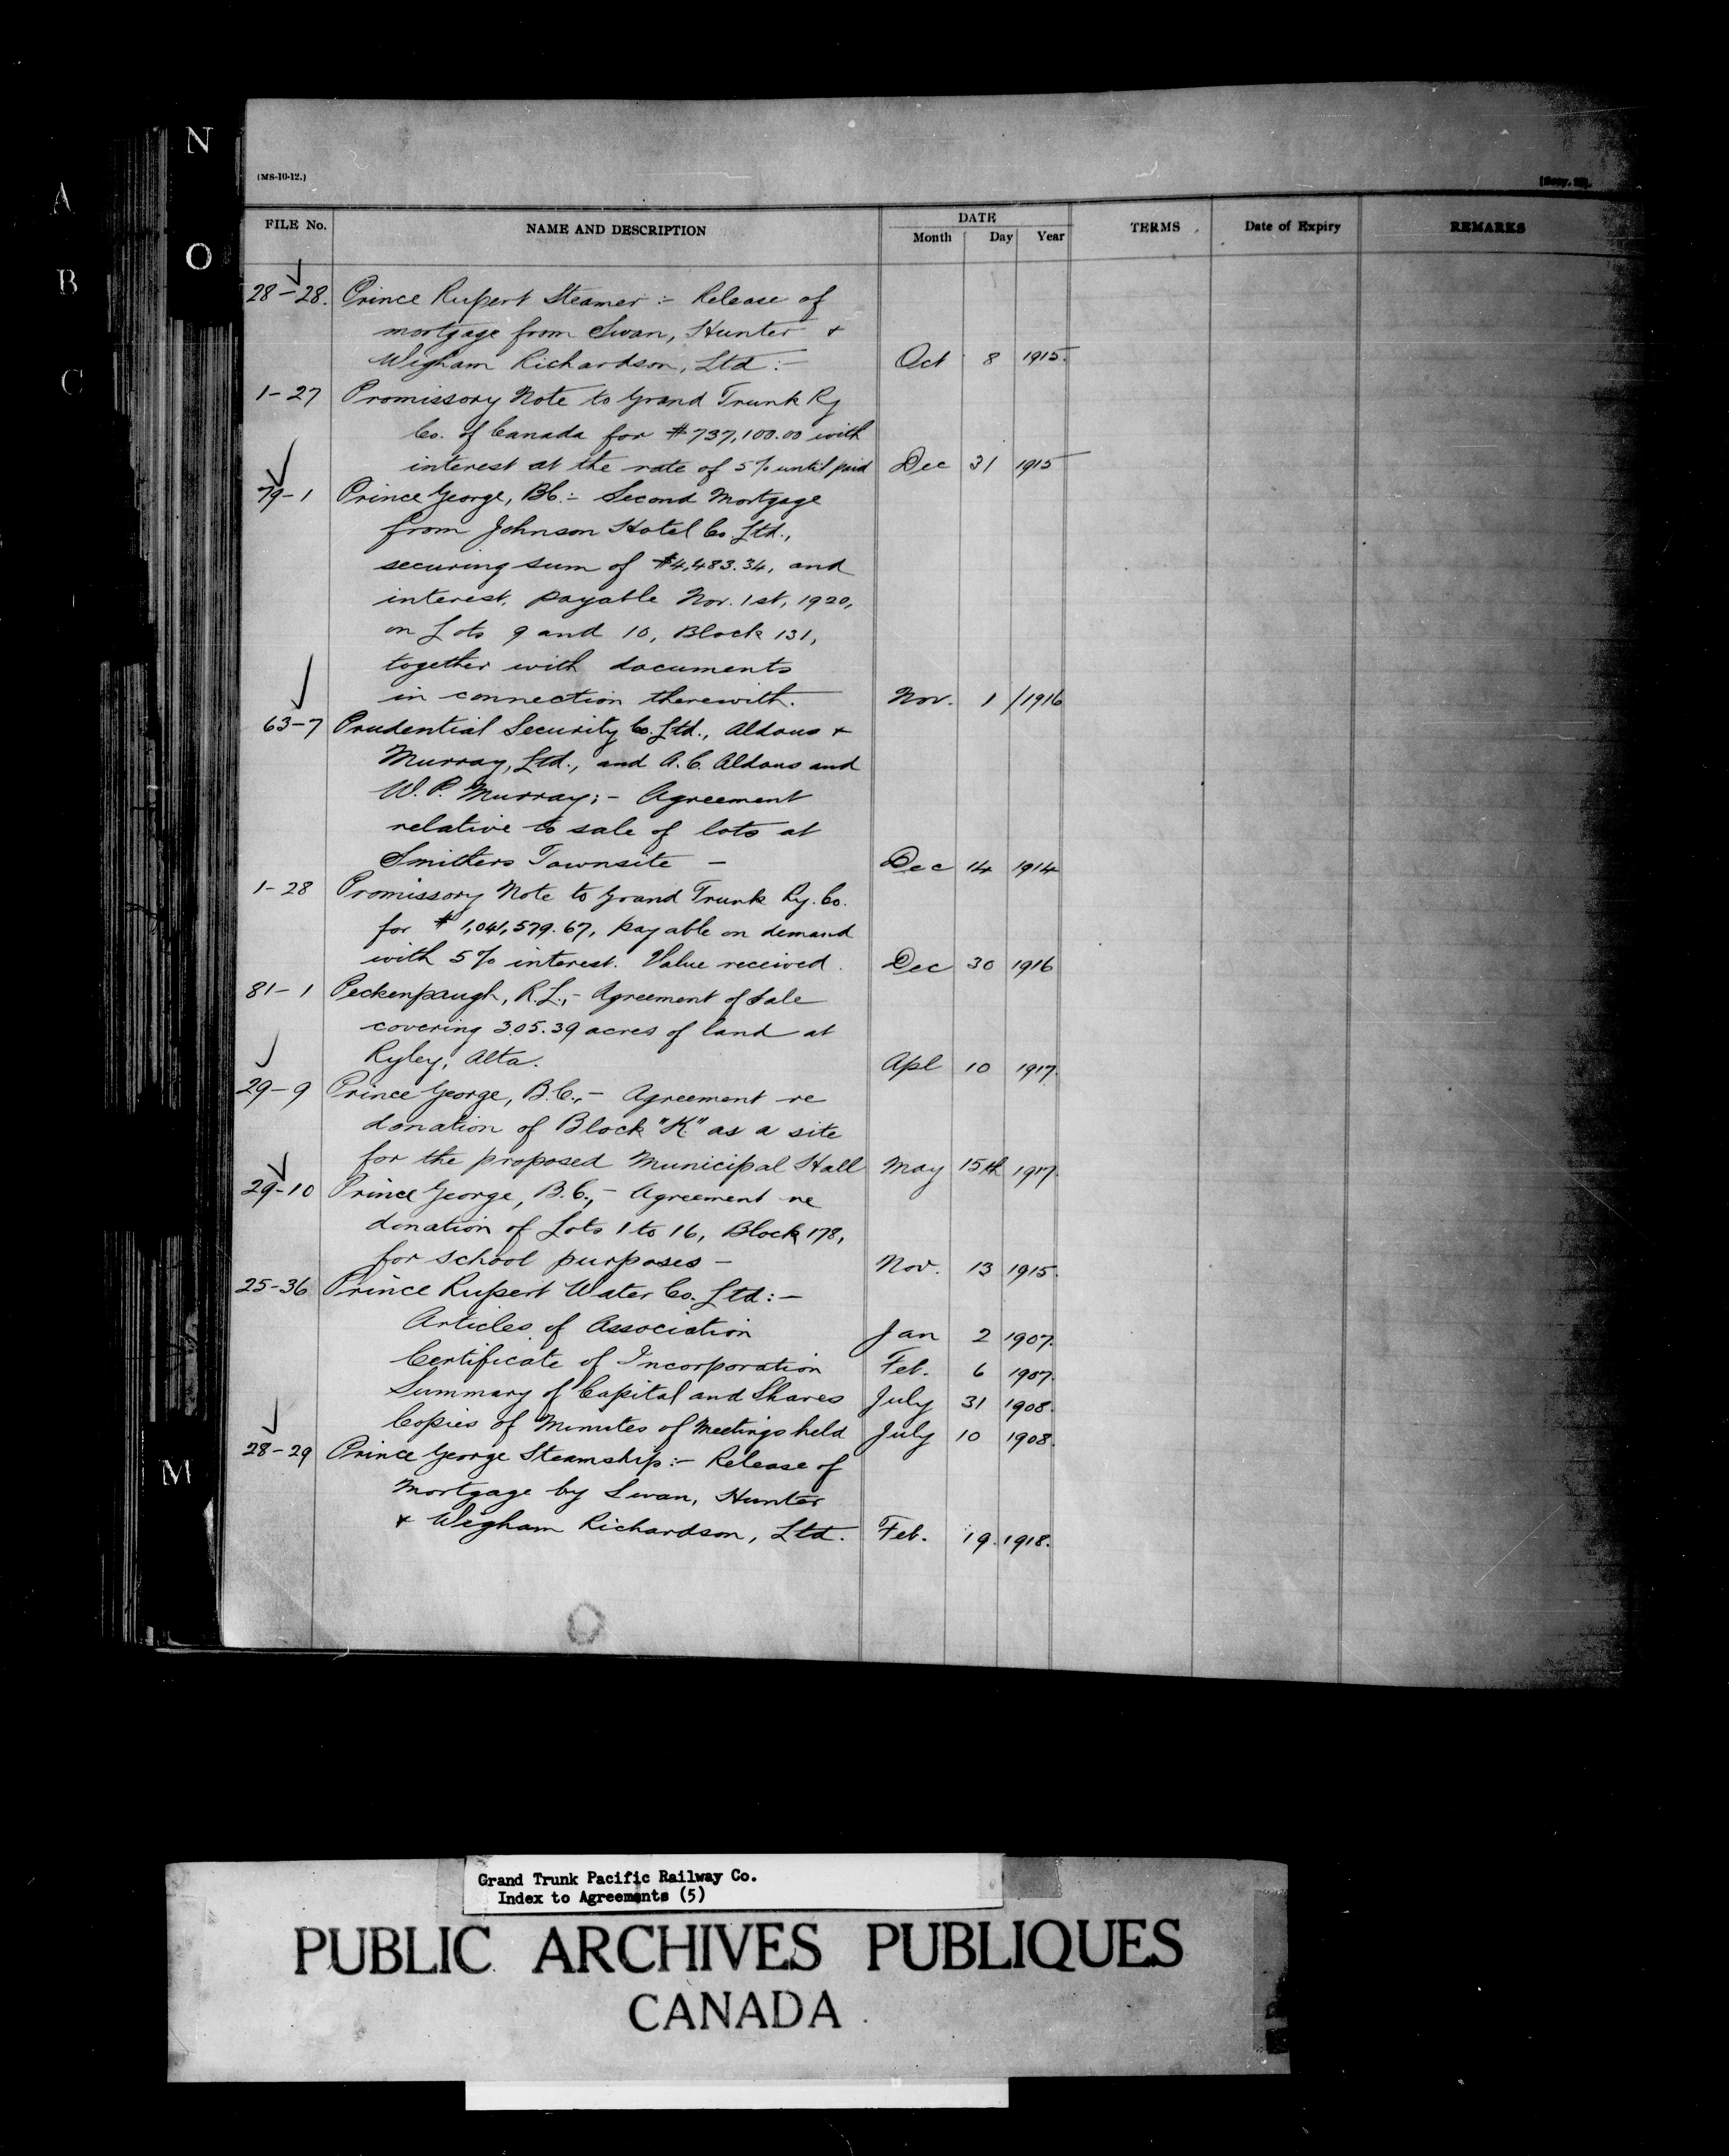 N
A
O
B
C
M
(MS-10-12.)
FILE No. NAME AND DESCRIPTION DATE Month Day Year TERMS Date of Expiry REMARKS
28-28. Prince Rupert Steamer :- Release of
mortgage from Swan, Hunter &
Wigham Richardson, Ltd :- Oct 8 1915.
1-27 Promissory Note to Grand Trunk Ry
Co. of Canada for $737,100.00 with
interest at the rate of 5% until paid Dec 31 1915
79-1 Prince George, BC:- Second Mortgage
from Johnson Hotel Co. Ltd.,
securing sum of $4,483.34, and
interest, payable Nov. 1st, 1920,
on Lots 9 and 10, Block 131,
together with documents
in connection therewith. Nov. 1/1916
63-7 Prudential Security Co. Ltd., Aldous &
Murray, Ltd., and A.C. Aldous and
W. P. Murray:- Agreement
relative to sale of lots at
Smithers Townsite - Dec 14 1914
1-28 Promissory Note to Grand Trunk Ry. Co.
for $1,041,579.67, payable on demand
with 5% interest. Value received. Dec 30 1916
81-1 Peckenpaugh, R.L.,- Agreement of Sale
covering 305.39 acres of land at
Ryley, Alta. Apl 10 1917.
29-9 Prince George, B.C.,- Agreement re
donation of Block "K" as a site
for the proposed Municipal Hall May 15th 1917.
29-10 Prince George, B.C.,- Agreement re
donation of Lots 1 to 16, Block 178,
for school purposes - Nov. 13 1915.
25-36 Prince Rupert Water Co. Ltd:-
Articles of Association Jan 2 1907.
Certificate of Incorporation Feb. 6 1907.
Summary of Capital and Shares July 31 1908.
Copies of Minutes of Meetings held July 10 1908.
28-29 Prince George Steamship:- Release of
Mortgage by Swan, Hunter
& Wigham Richardson, Ltd. Feb. 19. 1918.
Grand Trunk Pacific Railway Co.
Index to Agreements (5)
PUBLIC ARCHIVES PUBLIQUES
CANADA